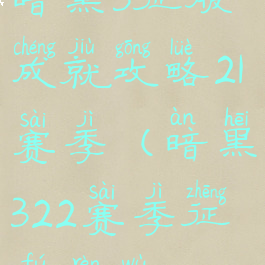 暗黑3征服
chéng jiù gōng lüè
成就攻略21
sài jì àn hēi
赛季(暗黑
sài jì zhēng
322赛季征
fú rèn wù